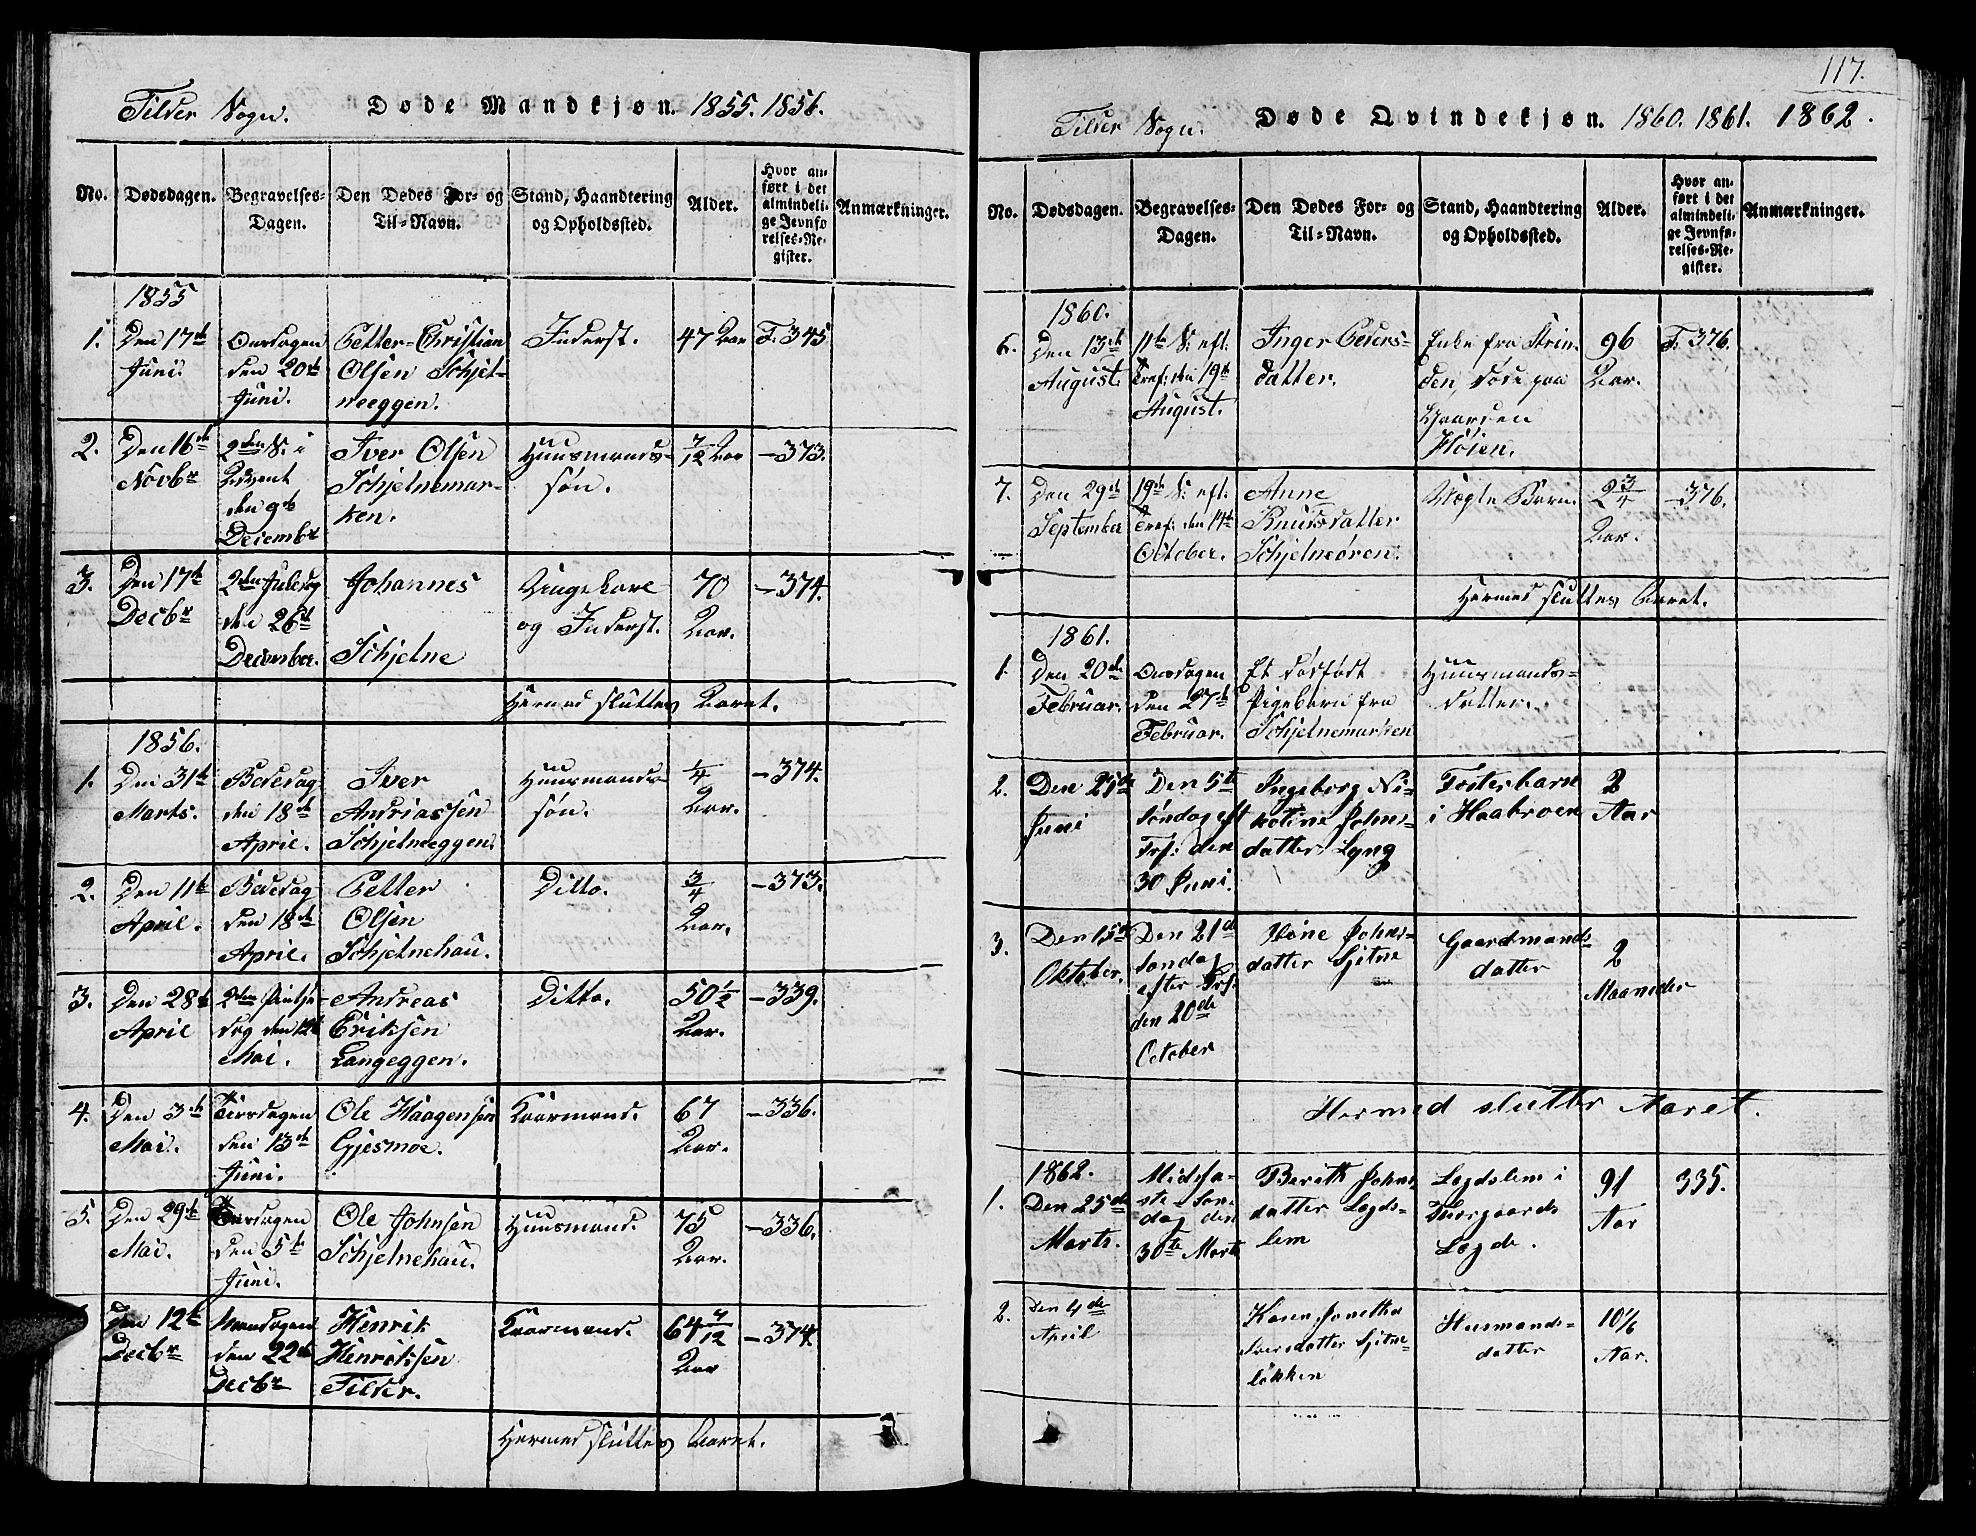 Tilder Sogn. Døde Mandkjøn. 1855. 1856.
No. Dødsdagen. Begravelses-Dagen. Den Dødes For- og Til-Navn. Stand, Haandtering og Opholdssted. Alder. Hvor anført i det almindelige Jevnførelses-Register. Anmærkninger.
1855
1. Den 17de Juni. Onsdagen den 20de Juni. Petter Christian Olsen Schjelneeggen. Inderst. 47 Aar F. 345
2. Den 16de Novbr 2den S. i Advent den 9de Decembr Iver Olsen Schjelnemarken. Huusmandssøn. 7/12 Aar —373.
3. Den 17de Decbr 2den Juledag den 26de December. Johannes Schjelne og Inderst. 70 Aar. —374.
Hermed sluttes Aaret.
1856.
1. Den 31te Marts. Bededag den 18de April. Iver Andriassen Schjelneeggen. Huusmandssøn. 1/4 Aar. —374.
2. Den 11te April. Bededag den 18de April. Petter Olsen Schjelnehau. Ditto. 3/4 Aar. —373.
3. Den 28de April 2den Pintsedag den 12te Mai. Andreas Eriksen Langeggen. Ditto. 50 1/2 Aar. —339.
4. Den 3de Mai. Tirsdagen den 13de Juni. Ole Haagensen Gjesmoe. Kaarmand. 67 Aar. —336.
5. Den 29de Mai. den 5te Juni. Ole Johnsen Schjelnehau. Huusmand. 75 Aar. —336.
Den 12te Decbr Mandagen den 22de Decbr Henrik Henriksen Tilder. Kaarmand. 64 7/12 Aar —374.
Hermed sluttes Aaret.
117.
Tilder Sogn. Døde Qvindekjøn. 1860. 1861. 1862.
No. Dødsdagen. Begravelses-Dagen. Den Dødes For- og Til-Navn. Stand, Haandtering og Opholdssted. Alder. Hvor anført i det almindelige Jevnførelses-Register. Anmærkninger.
1860.
6. Den 13de August. 11te S. eft. Tref: den 19de August. Inger Peersdatter. Enke fra Strinden, døde paa Gaarden Fløien. 96 Aar. F. 376.
7. Den 29de September 19de S. eft. Tref: den 14de October. Anne Knudsdatter Schjelneøren. Lægds Barn. 2 3/4 Aar. —376.
Hermed sluttes Aaret.
1861.
1. Den 20de Februar. Onsdagen den 27de Februar. Et dødfødt Pigebarn fra Schjelnemarken Huusmandsdatter.
2. Den 21de Juni Den 5te Søndag eft Trf: den 30 Juni. Ingeborg Nikoline Johnsdatter Lyng Fosterbarn i Haabroen 2 Aar
3. Den 15de Oktober. Den 21de Søndag efter Trf: den 20de October Johnsdatter Sjetne Gaardmandsdatter 2 Maaneder
Hermed slutter Aaret.
1862.
1. Den 25de Marts. Midfaste Søndag den 30te Marts Berith Johnsdatter Lægdslem Lægdslem i Lægde. 91 Aar 335.
2. Den 4de April Karen Jonetha Iversdatter Sjetneløkken Husmandsdatter 10 1/6 Aar.